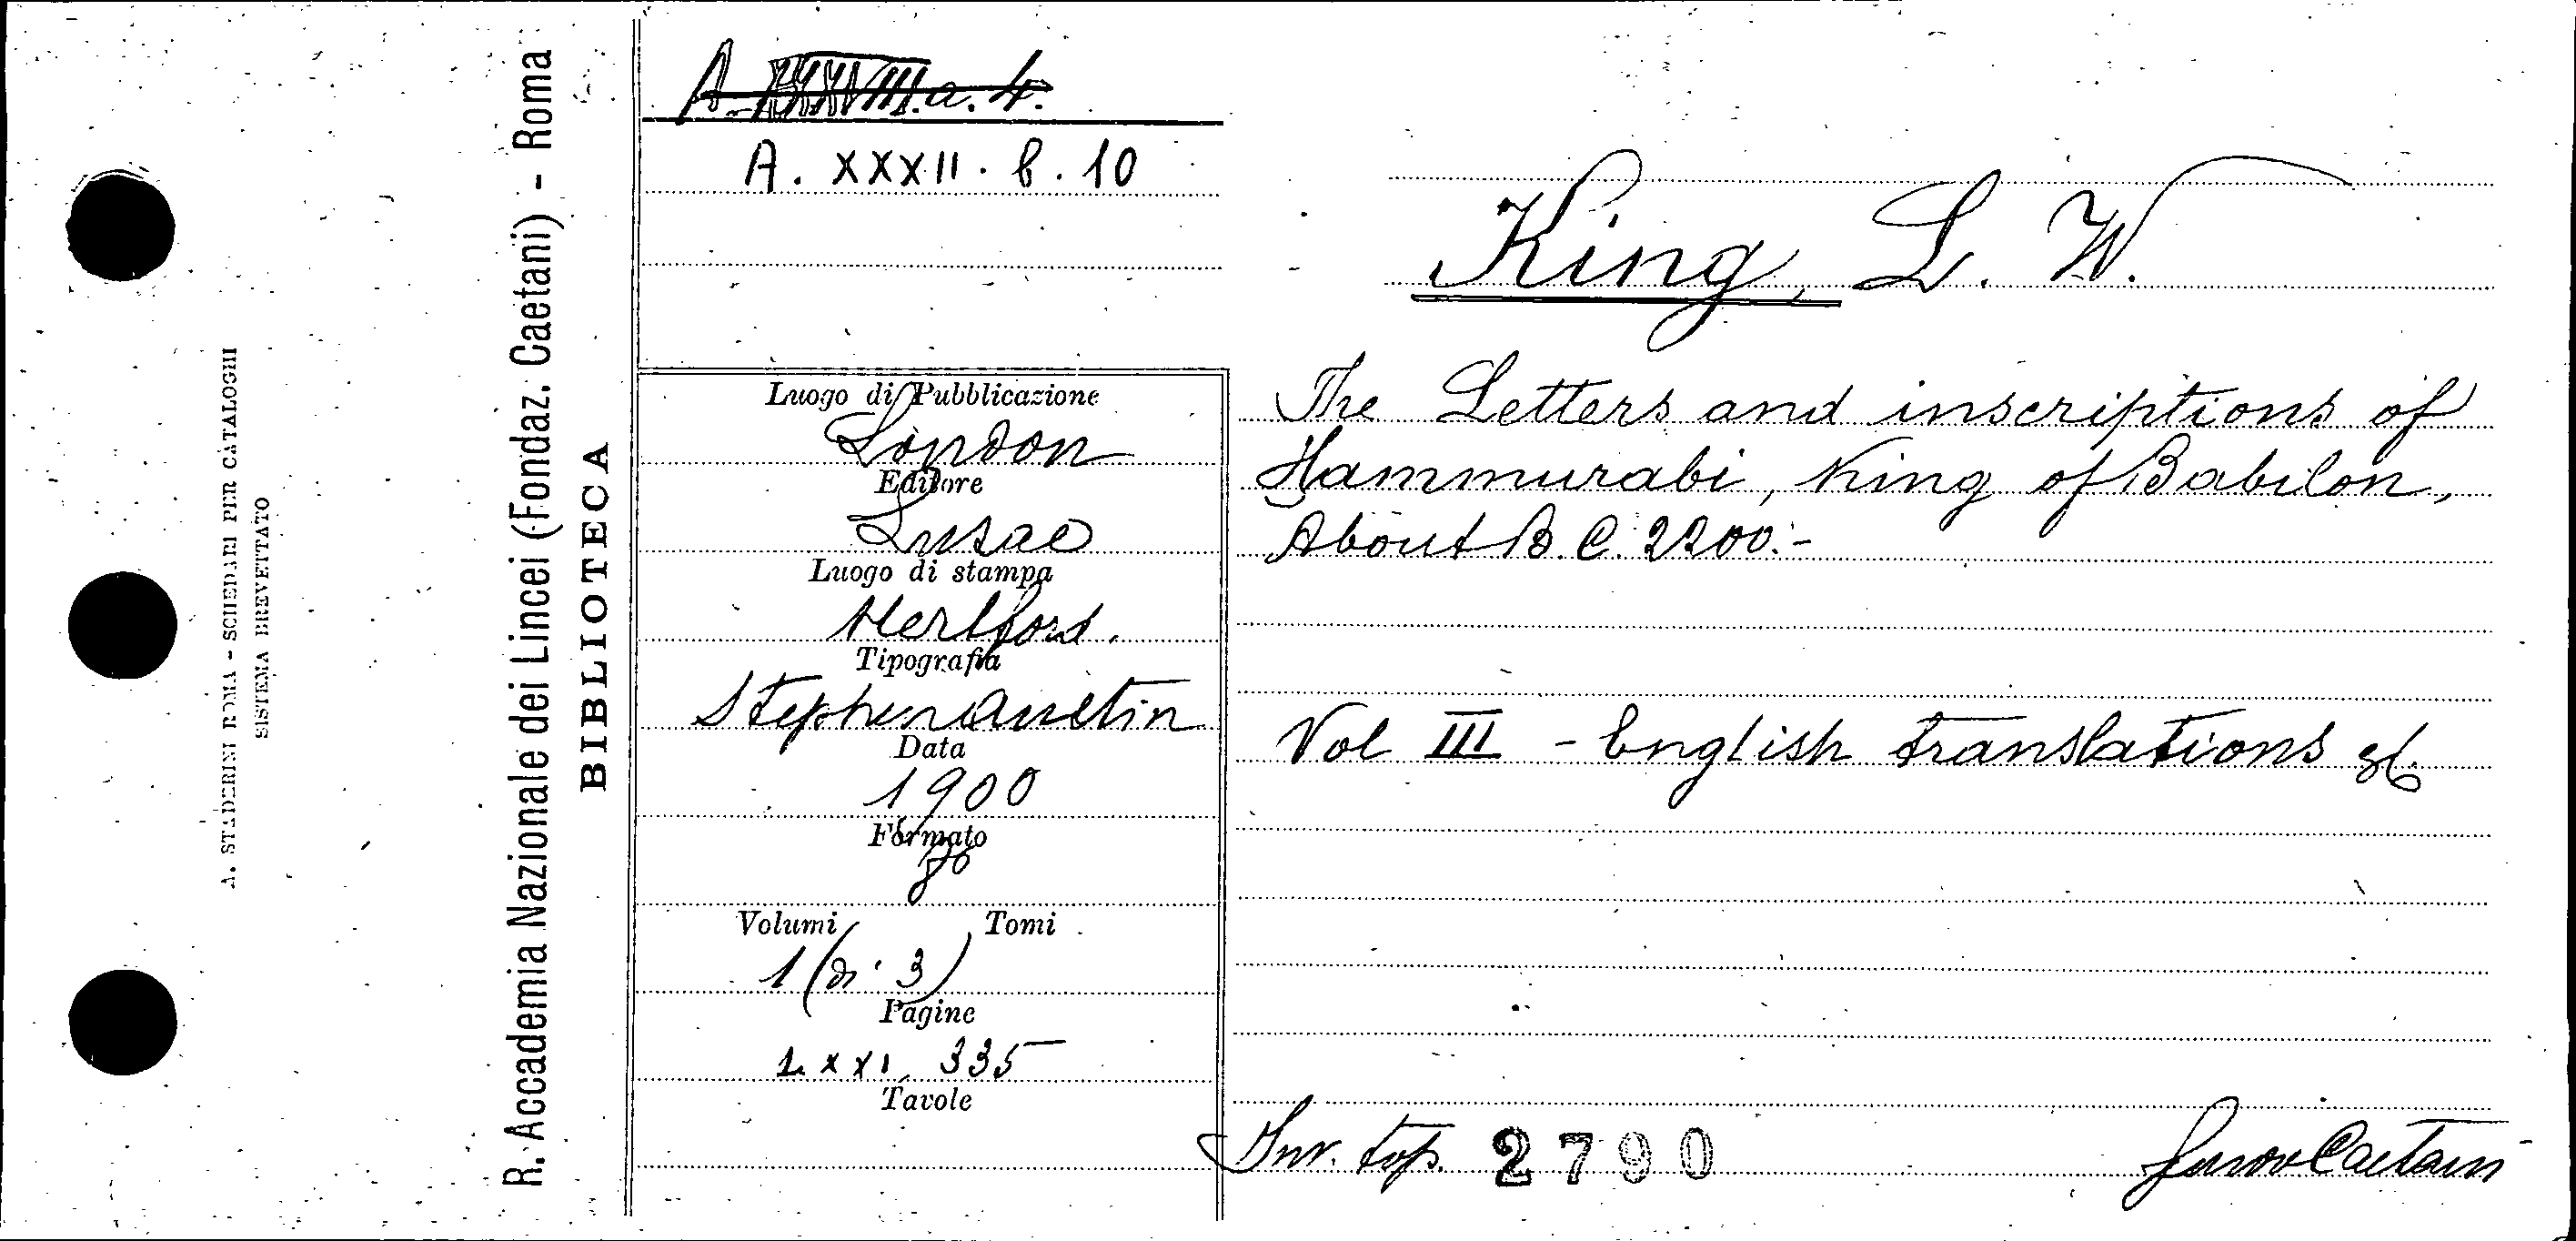 A. STADERINI ROMA - SCHEDARI PER CATALOGHI
SISTEMA BREVETTATO
R. Accademia Nazionale dei Lincei (Fondaz. Caetani) - Roma
BIBLIOTECA
A. XXXII. b. 10
Luogo di Pubblicazione
London
Editore
Luzac
Luogo di stampa
Hertford.
Tipografia
Stephen Austin
Data
1900
Formato
8°
Volumi Tomi
1 (di 3)
Pagine
LXXI, 335
Tavole
King, L. W.
The Letters and inscriptions of
Hammurabi, King of Babilon,
About B. C. 2200.-
Vol III - English translations
Inv. top. 2790
Caetani